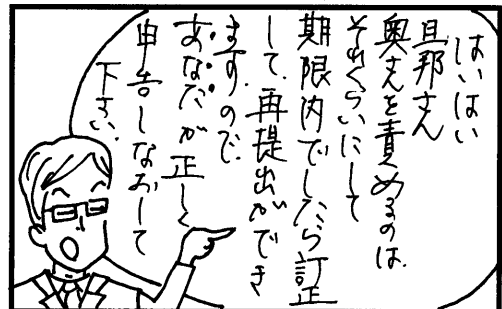 はいはい
旦那さん
奥さんを責めるのは、
それくらいにして
期限内でしたら訂正
して、再提出ができ
ますので、
あなたが正しく
申告しなおして
下さい。